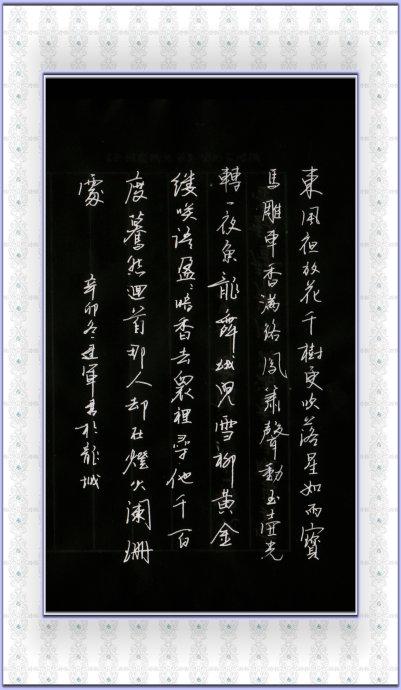 東風夜放花千樹更吹落星如雨寶
馬雕車香滿路鳳簫聲動玉壺光
轉一夜魚龍舞蛾兒雪柳黃金
縷唉語盈盈暗香去衆裡尋他千百
度驀然迴首那人却在燈火阑珊
處
辛卯冬建軍書於龍城